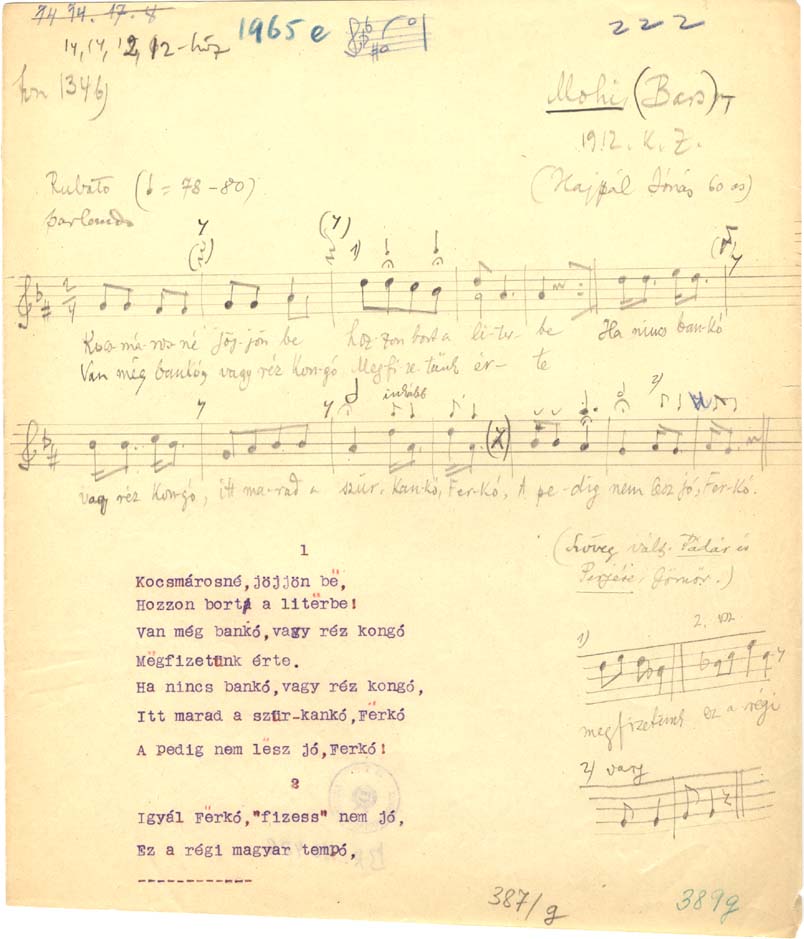 14, 14, 12, 12-höz
1965 e
222
Mohi (Bars) T
1912. K. Z.
Rubato (♩ = 78-80)
parlando
( Jónás 60 as)
1)
Kocs-má-ros-né jöj-jön be hoz-zon bort a li-ter-be Ha nincs ban-kó
Van még bankó, vagy réz kon-gó Megfi-ze-tünk ér-te
inkább
2)
vagy réz kon-gó, itt ma-rad a szűr-kan-kó, Fer-kó, A pe-dig nem lesz jó, Fer-kó.
(Szöveg vált. Pádár és
Gömör.)
1
Kocsmárosné,jöjjön bë,
Hozzon bort a litërbe!
Van még bankó,vagy réz kongó
Mëgfizetünk érte.
Ha nincs bankó,vagy réz kongó,
Itt marad a szűr-kankó,Fërkó
A pedig nem lësz jó,Ferkó!
2
Igyál Fërkó,"fizess" nem jó,
Ez a régi magyar tempó,
------------
1)
2. vsz
megfizetünk ez a régi
2) vagy
387/g
389g